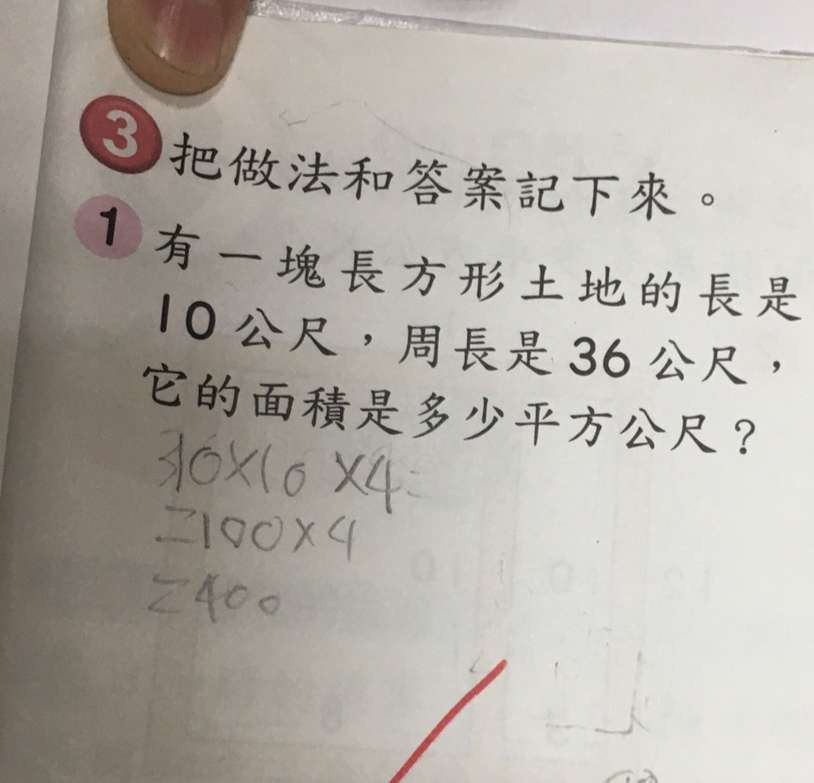 3 把做法和答案記下來。
1 有一塊長方形土地的長是
10公尺，周長是36公尺，
它的面積是多少平方公尺？
10×10×4=
=100×4
=400